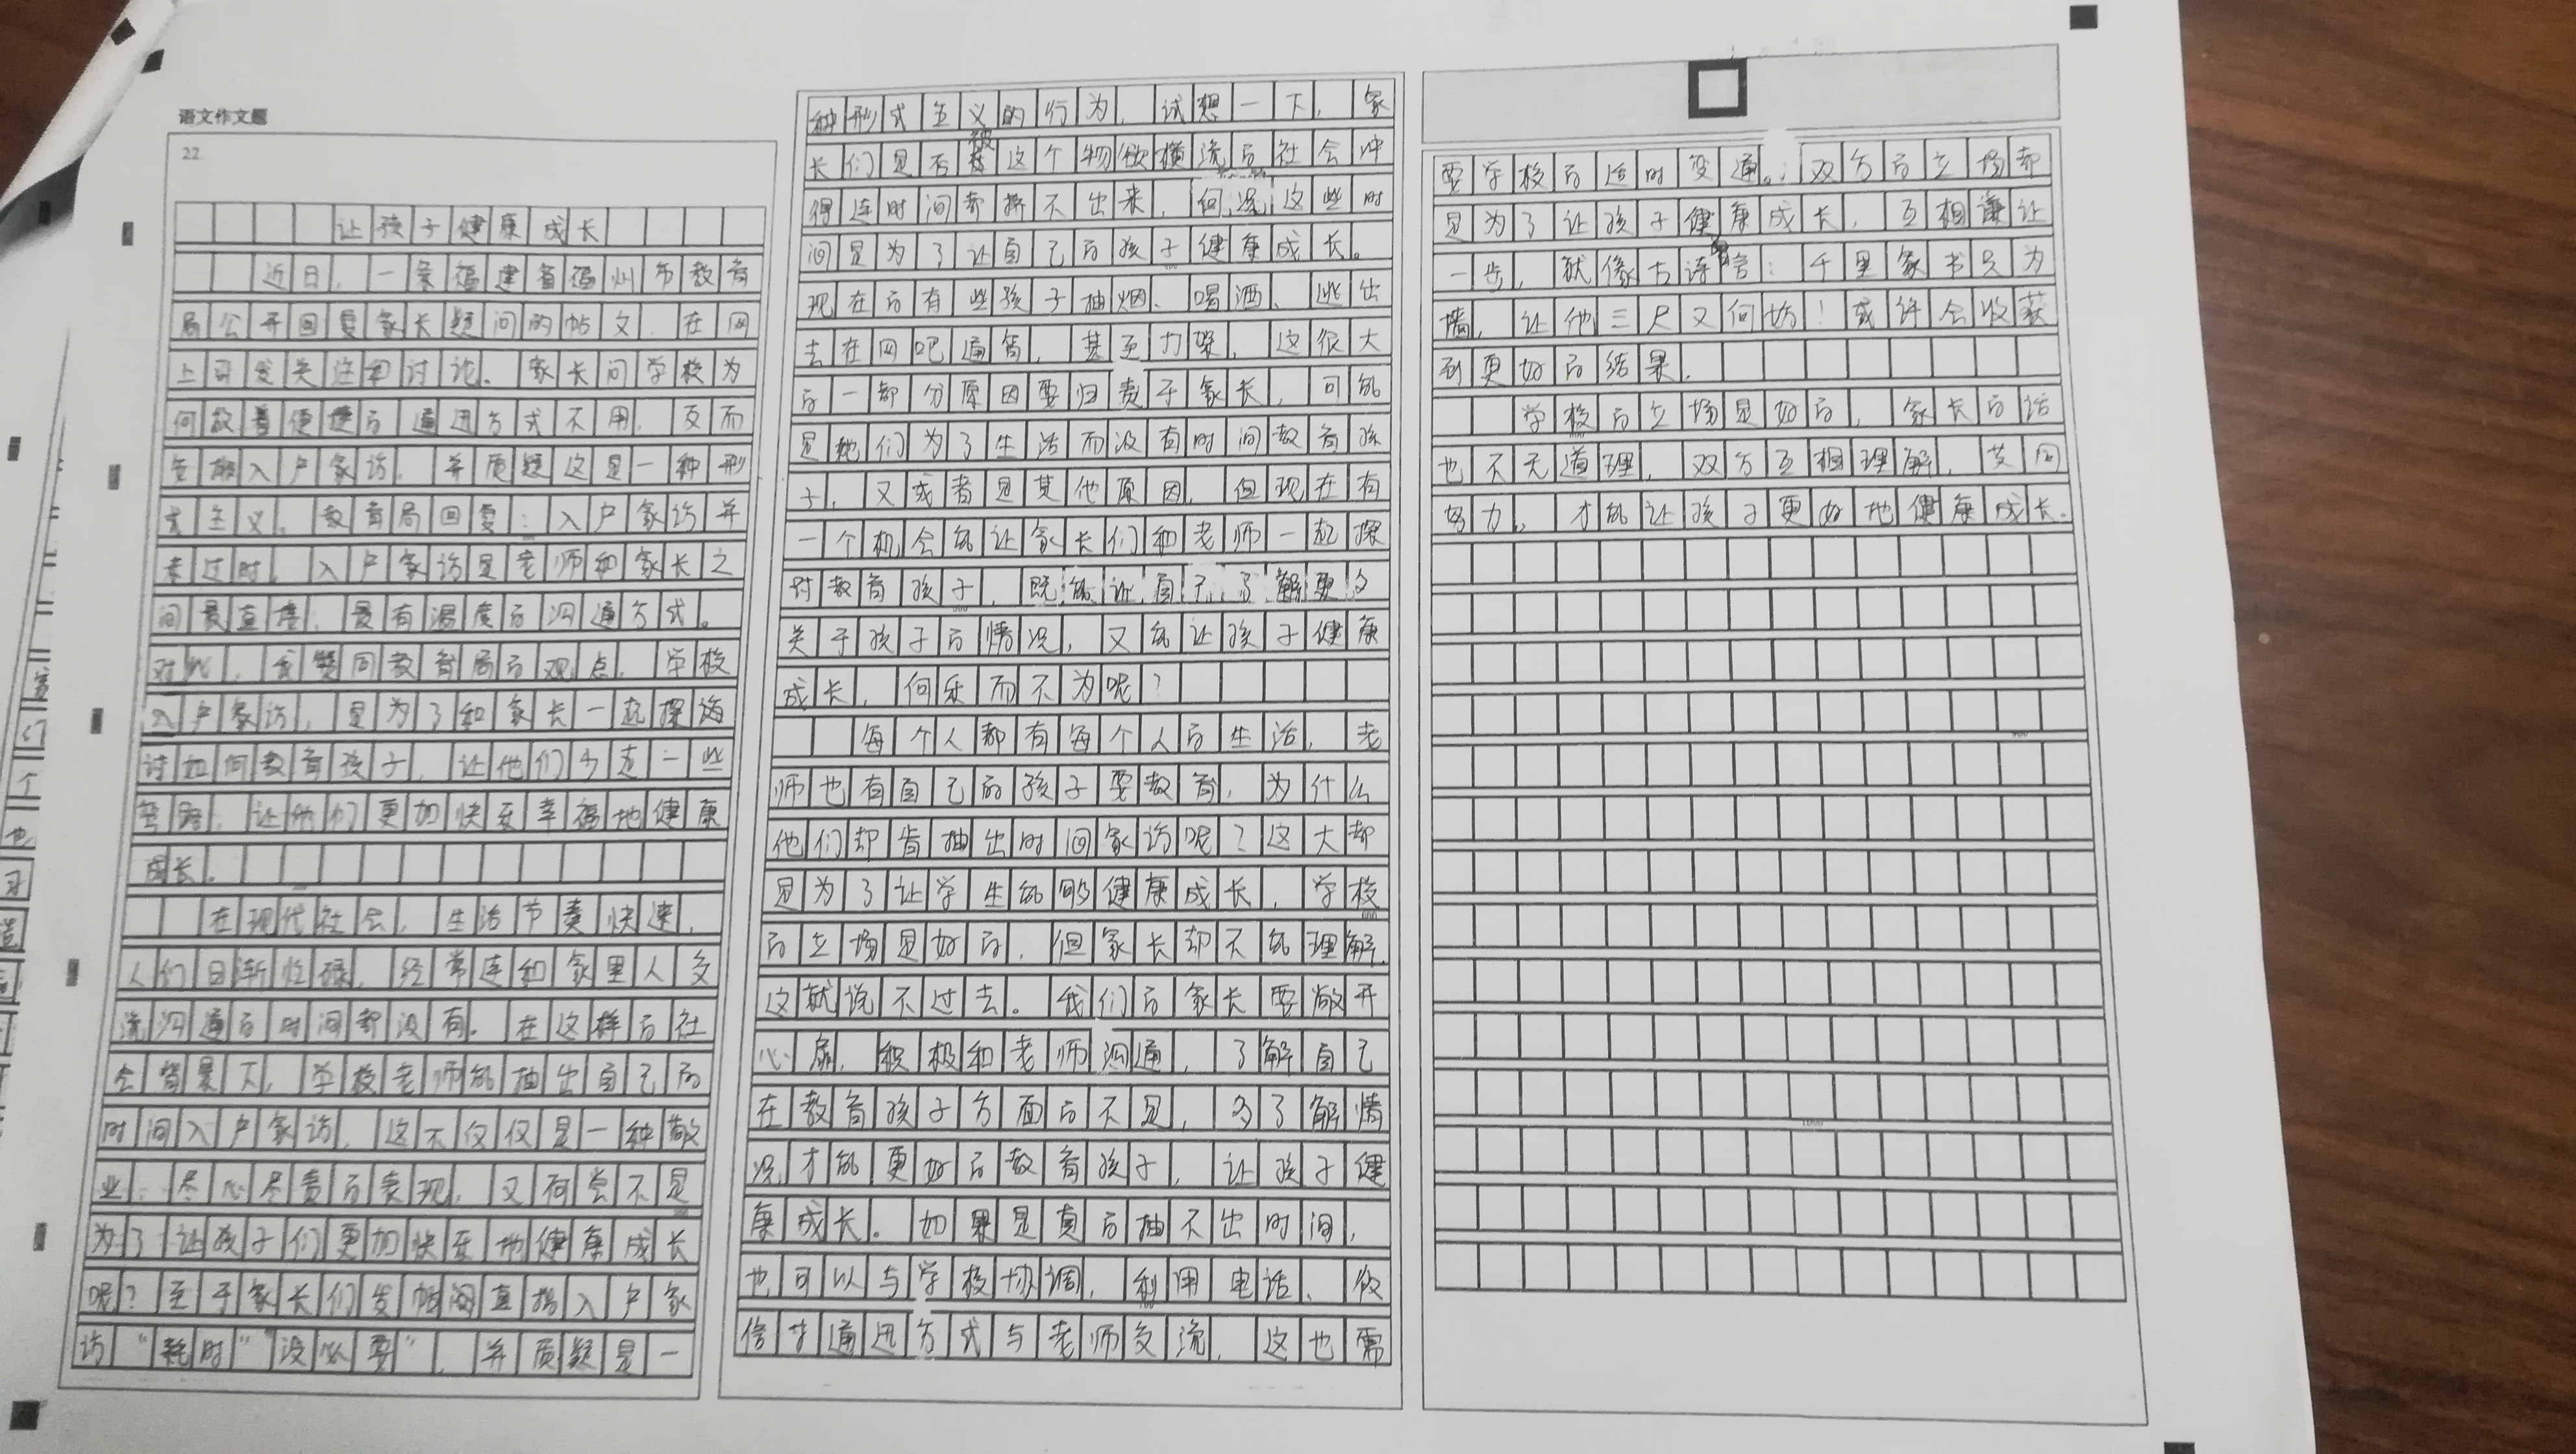 语文作文题
22.
让孩子健康成长
近日，一条福建省福州市教育
局公开回复家长疑问的帖文，在网
上引发关注和讨论。家长问学校为
何放着便捷的通迅方式不用，反而
要搞入户家访，并质疑这是一种形
式主义。教育局回复：入户家访并
未过时，入户家访是老师和家长之
间最直接、最有温度的沟通方式。
对此，我赞同教育局的观点，学校
入户家访，是为了和家长一起探讨
讨如何教育孩子，让他们少走一些
弯路，让他们更加快乐幸福地健康
成长。
在现代社会，生活节奏快速，
人们日渐忙碌，经常连和家里人交
流沟通的时间都没有。在这样的社
会背景下，学校老师能抽出自己的
时间入户家访，这不仅仅是一种敬
业、尽心尽责的表现，又何尝不是
为了让孩子们更加快乐地健康成长
呢？至于家长们发帖问直指入户家
访“耗时”“没必要”，并质疑是一
种形式主义的行为，试想一下，家
长们是否被这个物欲横流的社会冲
得连时间都挤不出来，何况这些时
间是为了让自己的孩子健康成长。
现在的有些孩子抽烟、喝酒、逃出
去在网吧通宵，甚至打架，这很大
的一部分原因要归责于家长，可能
是她们为了生活而没有时间教育孩
子，又或者是其他原因，但现在有
一个机会能让家长们和老师一起探
讨教育孩子，既能让自己了解更多
关于孩子的情况，又能让孩子健康
成长，何乐而不为呢？
每个人都有每个人的生活，老
师也有自己的孩子要教育，为什么
他们却肯抽出时间家访呢？这大都
是为了让学生能够健康成长，学校
的立场是好的，但家长却不能理解，
这就说不过去。我们的家长要敞开
心扉，积极和老师沟通，了解自己
在教育孩子方面的不足，多了解情
况才能更好的教育孩子，让孩子健
康成长。如果是真的抽不出时间，
也可以与学校协调，利用电话、微
信等通迅方式与老师交流，这也需
要学校的适时变通。双方的立场都
是为了让孩子健康成长，互相谦让
一步，就像古诗言：千里家书只为
墙，让他三尺又何妨！或许会收获
到更好的结果。
学校的立场是好的，家长的话
也不无道理，双方互相理解，共同
努力，才能让孩子更好地健康成长。